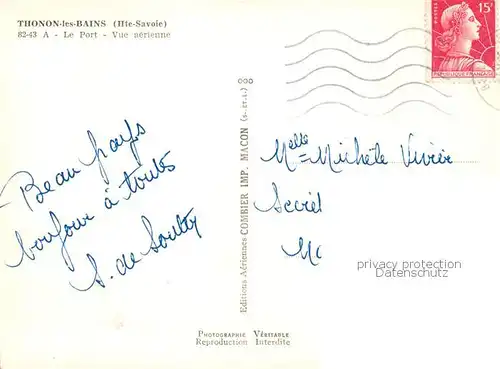 THONON-les-BAINS (Hte-Savoie)
82-43 A - Le Port - Vue aérienne
15F
Beau pays
bonjour à toutes
S. de Soultz
Editions Aériennes COMBIER IMP. MACON (S.-et-L.)
Melle Michèle Vivier
Secrét
privacy protection
Datenschutz
PHOTOGRAPHIE VÉRITABLE
Reproduction Interdite